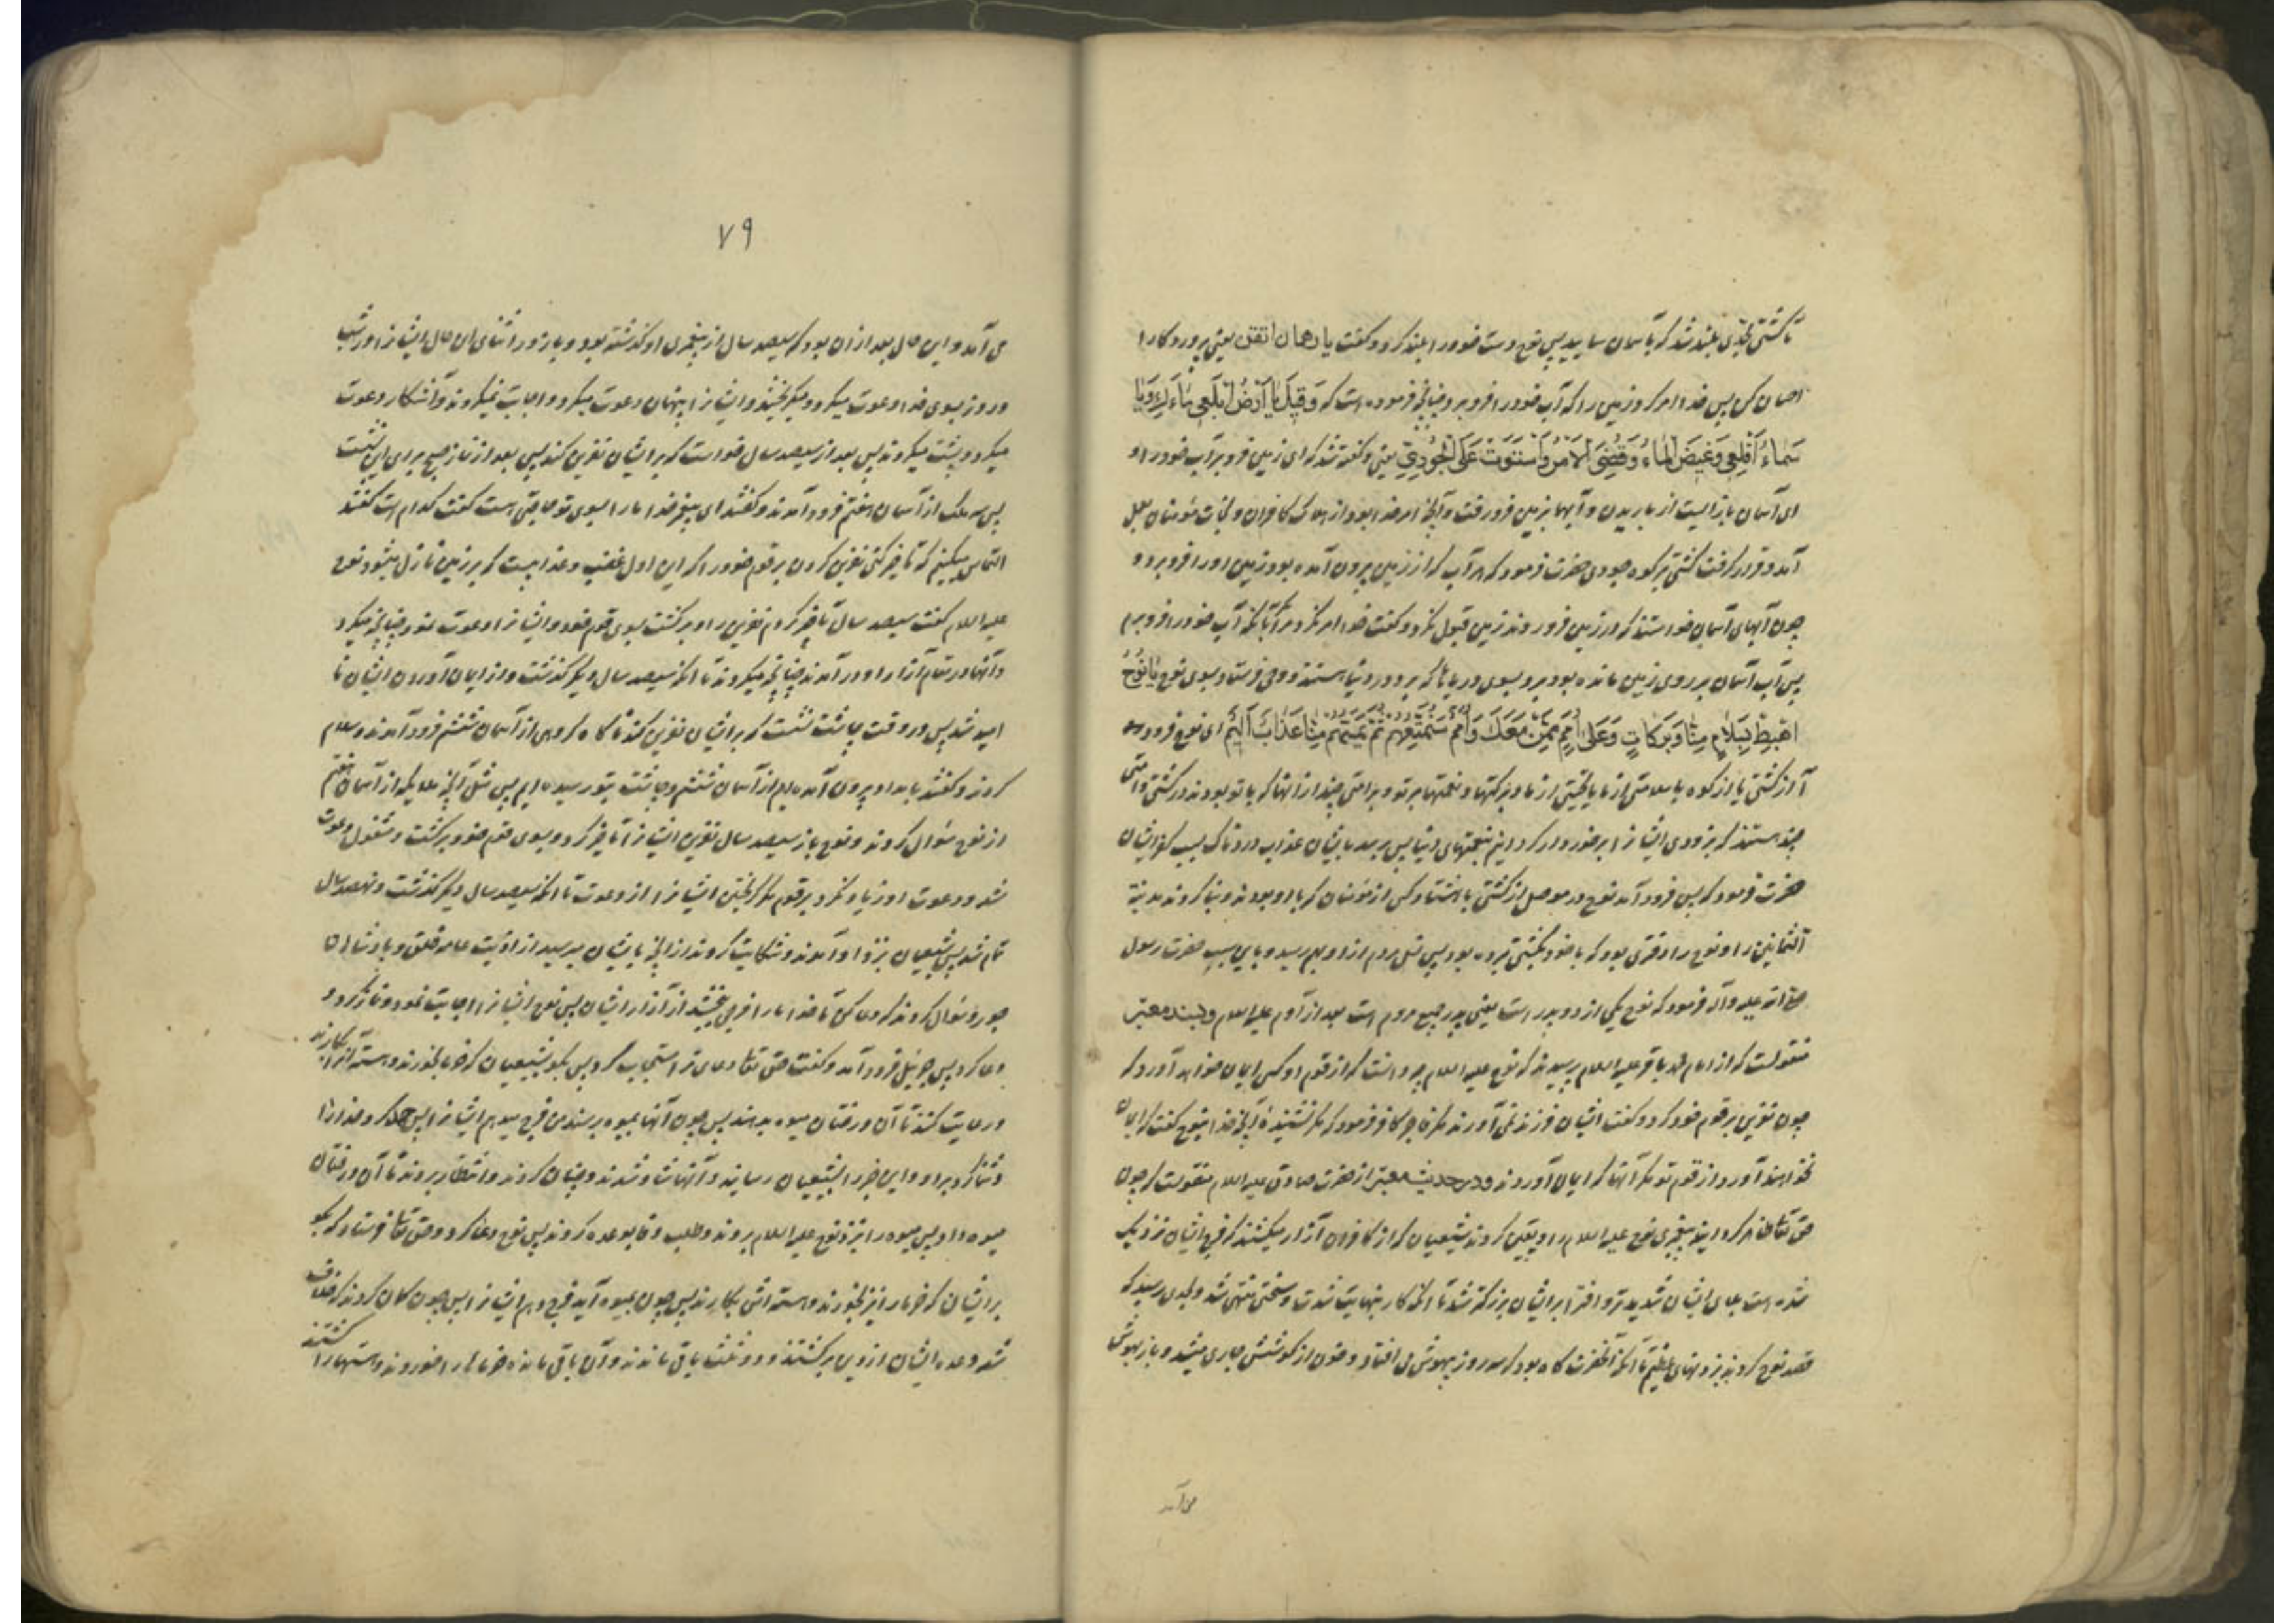 تا کشتی بحدی بلند شد که بآسمان سایید پس نوح دست خود را بلند کرد و گفت یا رهمان اتقن یعنی پروردکارا
احسان کن پس خدا امر کرد زمین را که آب خود را فرو برد چنانچه فرموده است که وَقِیلَ یَا اَرْضُ ابْلَعِی مَاءَکِ وَیَا
سَمَاءُ اَقْلِعِی وَغِیضَ الْمَاءُ وَقُضِیَ الْاَمْرُ وَاسْتَوَتْ عَلَی الْجُودِیِّ یعنی و گفته شد که ای زمین فرو بر آب خود را و
ای آسمان باز ایست از باریدن و آبها بزمین فرو رفت و آنچه امر خدا بود از هلاک کافران و نجات مؤمنان بعمل
آمد و قرار گرفت کشتی بر کوه جودی حضرت فرمود که هر آب که از زمین بیرون آمده بود زمین او را فرو برد و
چون آبهای آسمان خواستند که در زمین فرو روند زمین قبول نکرد و گفت خدا امر نکرد مرا مکر آنکه آب خود را فرو برم
پس آب آسمان بر روی زمین مانده بود برد بسوی دریاها که بر دور دنیا هستند و وحی فرستاد بسوی نوح یَا نُوحُ
اهْبِطْ بِسَلَامٍ مِنَّا وَبَرَکَاتٍ وَعَلَی اُمَمٍ مِمَّنْ مَعَکَ وَاُمَمٌ سَنُمَتِّعُهُمْ ثُمَّ یَمَسُّهُمْ مِنَّا عَذَابٌ اَلِیمٌ ای نوح فرود
آ از کشتی یا از کوه با سلامتی از ما یا تحیتی از ما و برکتها و نعمتها بر تو و بر امتی چند از آنها که با تو بودند در کشتی و امتی
چند هستند که بزودی ایشانرا برخوردار کردانیم بنعمتهای دنیا پس برسد بایشان عذاب دردناک بسبب کفر ایشان
حضرت فرمود که پس فرود آمد نوح در موصل از کشتی با هشتاد کس از مؤمنان که با او بودند و بنا کردند مدینة
الثمانین را و نوح را دختری بود که با خود بکشتی برده بود پس نسل مردم از او بهم رسید و باین سبب حضرت رسول
صلی الله علیه وآله فرمود که نوح یکی از دو پدر است یعنی پدر جمیع مردم است بعد از آدم علیه السلام وبسند معتبر
منقولست که از امام محمد باقر علیه السلام پرسیدند که نوح علیه السلام چه دانست که از قوم او کسی ایمان نخواهد آورد که
چون نفرین بر قوم خود کرد و گفت ایشان فرزند نمی آورند مکر فاجر کافر فرمود که مکر نشنیدۀ آنچه خدا بنوح گفت که ایمان
نخواهند آورد از قوم تو مکر آنها که ایمان آوردند ودر حدیث معتبر از حضرت صادق علیه السلام منقولست که چون
حق تعالی ظاهر کردانید پیغمبری نوح علیه السلام را و یقین کردند شیعیان که از کافران آزار میکشند که فرج ایشان نزدیک
شده است بلای ایشان شدیدتر و افترا بر ایشان بزرکتر شد تا آنکه کار بنهایت شدت و سختی منتهی شد و بحدی رسید که
قصد نوح کردند بزدنهای عظیم تا آنکه آنحضرت کاه بود که سه روز بیهوش می افتاد و خون از کوشش جاری میشد و باز بهوش
می آمد
۷۹
می آمد و این حال بعد از آن بود که سیصد سال از پیغمبری او گذشته بود و باز در اثنای این حال ایشانرا در شب
و روز بسوی خدا دعوت میکرد و میکریختند و ایشانرا پنهان دعوت میکرد و اجابت نمیکردند و آشکار دعوت
میکرد و پشت میکردند پس بعد از سیصد سال خواست که بر ایشان نفرین کند پس بعد از نماز صبح برای این نشست
پس سه ملک از آسمان هفتم فرود آمدند و گفتند ای پیغمبر خدا ما را بسوی تو حاجتی است گفت کدام است گفتند
التماس میکنیم که تأخیر کنی نفرین کردن بر قوم خود را که این اول غضب و عذابیست که بر زمین نازل میشود نوح
علیه السلام گفت سیصد سال تأخیر کردم نفرین را و برکشت بسوی قوم خود و ایشانرا دعوت نمود چنانچه میکرد
و آنها در مقام آزار او در آمدند چنانچه میکردند تا آنکه سیصد سال دیکر گذشت و از ایمان آوردن ایشان نا
امید شد پس در وقت چاشت نشست که بر ایشان نفرین کند ناکاه کروهی از آسمان ششم فرود آمدند و سلام
کردند و گفتند بامداد بیرون آمده ایم از آسمان ششم و چاشت بتو رسیده ایم پس مثل آنچه ملایکه از آسمان هفتم
از نوح سؤال کردند و نوح باز سیصد سال نفرین ایشانرا تأخیر کرد و بسوی قوم خود برکشت و مشغول دعوت
شد و دعوت او زیاد نکرد بر قوم مکر کریختن ایشانرا از دعوت تا آنکه سیصد سال دیکر گذشت و نهصد سال
تمام شد پس شیعیان بنزد او آمدند و شکایت کردند از آنچه بایشان میرسید از اذیت عامه خلق و پادشاهان
جور و سؤال کردند که دعا کن تا خدا ما را فرجی بخشد از آزار ایشان پس نوح ایشانرا اجابت نمود و نماز کرد و
دعا کرد پس جبرئیل فرود آمد و گفت حق تعالی دعای ترا مستجاب کرد پس بکو بشیعیان که خرما بخورند و هسته آنرا بکارند
و رعایت کنند تا آن درختان میوه بدهند پس چون آنها بمیوه برسند من فرج میدهم ایشانرا پس حمد کرد خدا را
و ثنا کرد بر او و این خبر را بشیعیان رسانید و آنها شاد شدند و چنان کردند و انتظار بردند تا آن درختان
میوه داد پس میوه را بنزد نوح علیه السلام بردند و طلب وفا بوعده کردند پس نوح دعا کرد و حق تعالی فرستاد که بکو
بر ایشان که خرما را نیز بخورند و هسته اش بکارند پس چون بمیوه آید فرج دهم ایشانرا پس چون کمان کردند که خلاف
شد وعده ایشان از دین برکشتند و دو ثلث باقی ماندند و آن باقی مانده خرماها را خوردند و هستها را کشتند